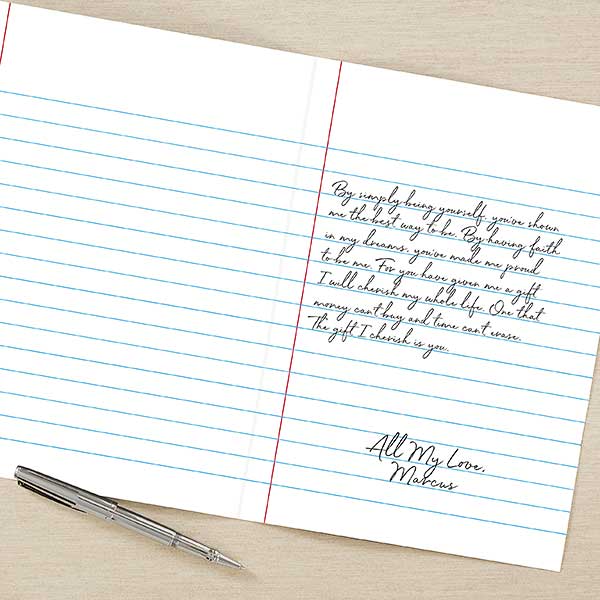 By simply being yourself, you've shown
me the best way to be. By having faith
in my dreams, you've made me proud
to be me. For you have given me a gift
I will cherish my whole life. One that
money can't buy and time can't erase.
The gift I cherish is you.
All My Love,
Marcus